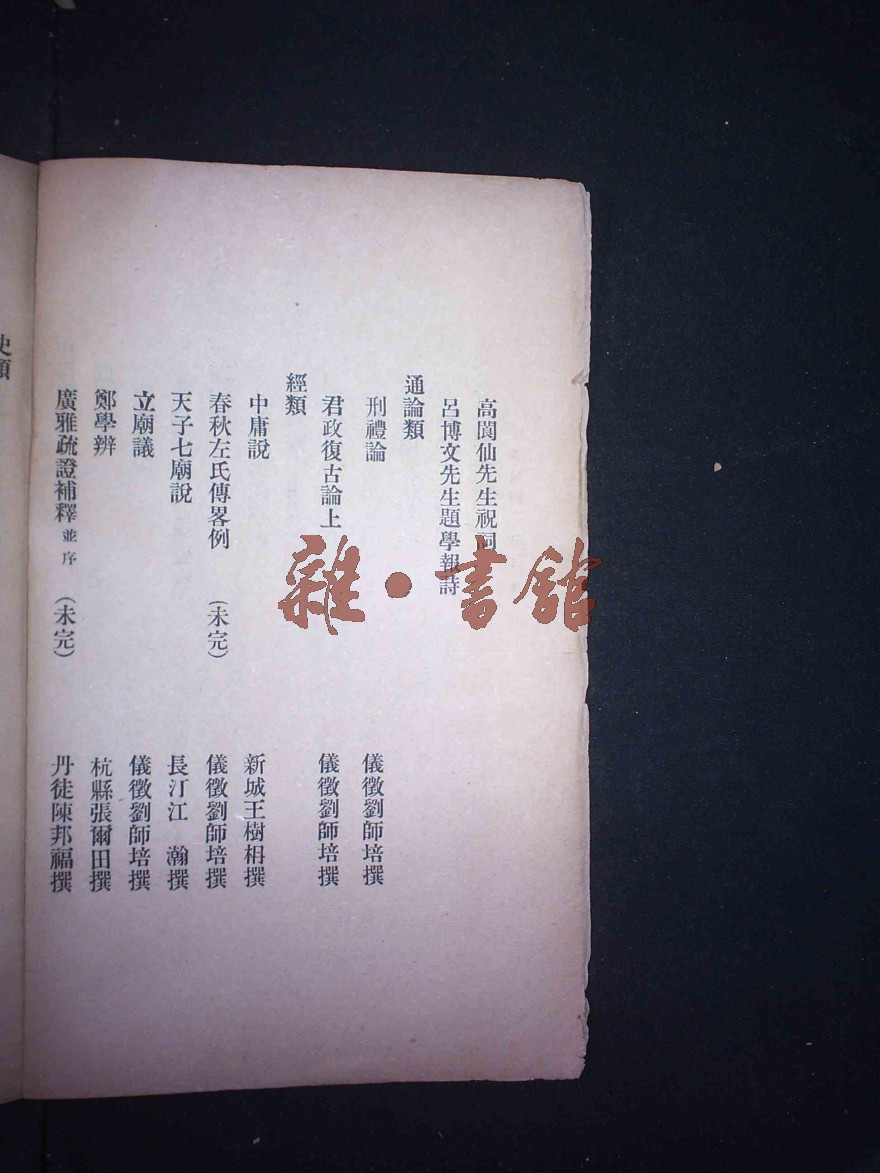 高閬仙先生祝詞
呂博文先生題學報詩
通論類
刑禮論 儀徵劉師培撰
君政復古論上 儀徵劉師培撰
經類
中庸說 新城王樹枏撰
春秋左氏傳畧例 (未完) 儀徵劉師培撰
天子七廟說 長汀江 瀚撰
立廟議 儀徵劉師培撰
鄭學辨 杭縣張爾田撰
廣雅疏證補釋 並序 (未完) 丹徒陳邦福撰
史類
雜·書館